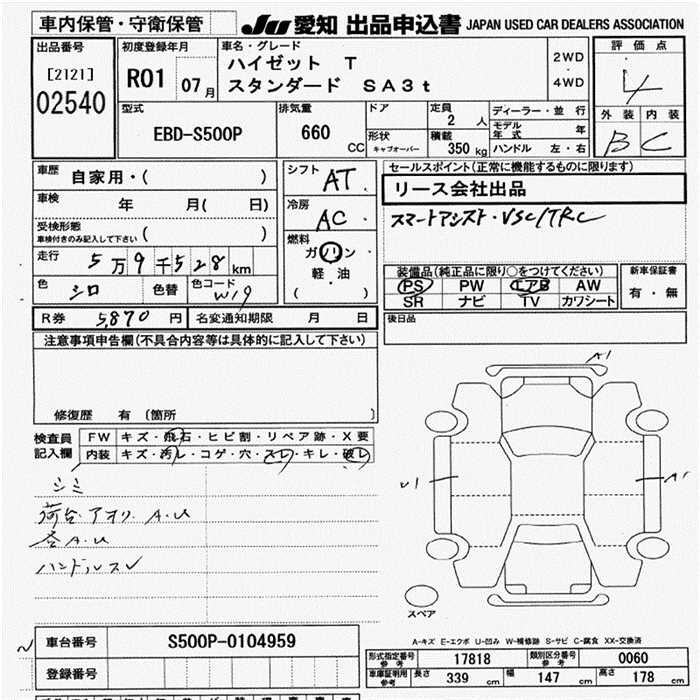 車内保管・守衛保管 JU 愛知 出品申込書 JAPAN USED CAR DEALERS ASSOCIATION
出品番号 [2121] 02540
初度登録年月 R01 07月
車名・グレード ハイゼット T
スタンダード SA3t
2WD・4WD
評価点 4
外装 内装
B C
型式 EBD-S500P
排気量 660 CC
ドア
形状 キャブオーバー
定員 2 人
積載 350 kg
ディーラー・並行
モデル年式 年
ハンドル 左・右
車歴 自家用・( )
車検 年 月( 日)
受検形態 車検付きのみ記入して下さい ( )
走行 5万9千528km
色 シロ 色替 色コード W19
シフト AT
冷房 AC
燃料 ガソリン・軽油
( )
セールスポイント(正常に機能するものに限ります)
リース会社出品
スマートアシスト・VSC/TRC
装備品(純正品に限り○をつけてください)
PS PW エアB AW
SR ナビ TV カワシート
新車保証書
有・無
R券 5,870 円 名変通知期限 月 日
後日品
注意事項申告欄(不具合内容等は具体的に記入して下さい)
修復歴 有 〔箇所 〕
検査員記入欄
FW キズ・飛石・ヒビ割・リペア跡・X要
内装 キズ・汚レ・コゲ・穴・スレ・キレ・破レ
シミ
荷台アオリ A.U
A.U
ハンドルスレ
A1
U1
A1
スペア
A-キズ E-エクボ U-凹み W-補修跡 S-サビ C-腐食 XX-交換済
車台番号 S500P-0104959
登録番号
形式指定番号 参考 17818 類別区分番号 参考 0060
車庫証明用 参考 長さ 339 cm 幅 147 cm 高さ 178 cm